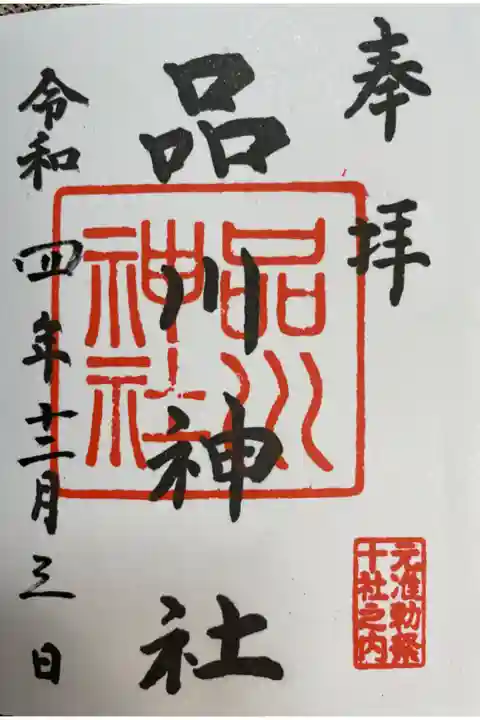 奉拝
品川神社
品川
神社
元准勅祭
十社之内
令和四年十二月三日